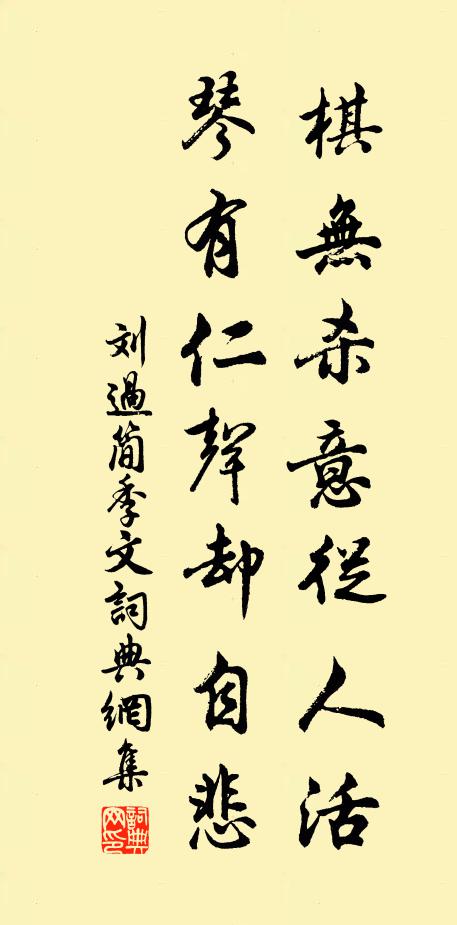 棋無杀意從人活
琴有仁聲却自悲
刘過简季文詞典網集
詞典網印